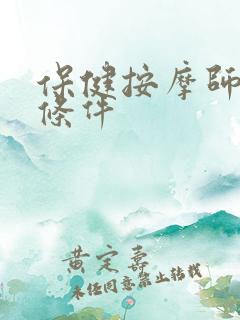 保健按摩師
條件
黄定嘉
未经同意禁止转载